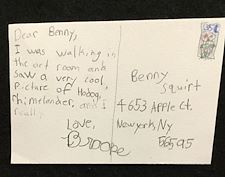 Dear Benny,
I was walking in
the art room and
saw a very cool
picture of Hodag,
rhinelander, and I
really
Love,
Brooke
Benny
Squirt
4653 Apple Ct.
Newyork, Ny
56595